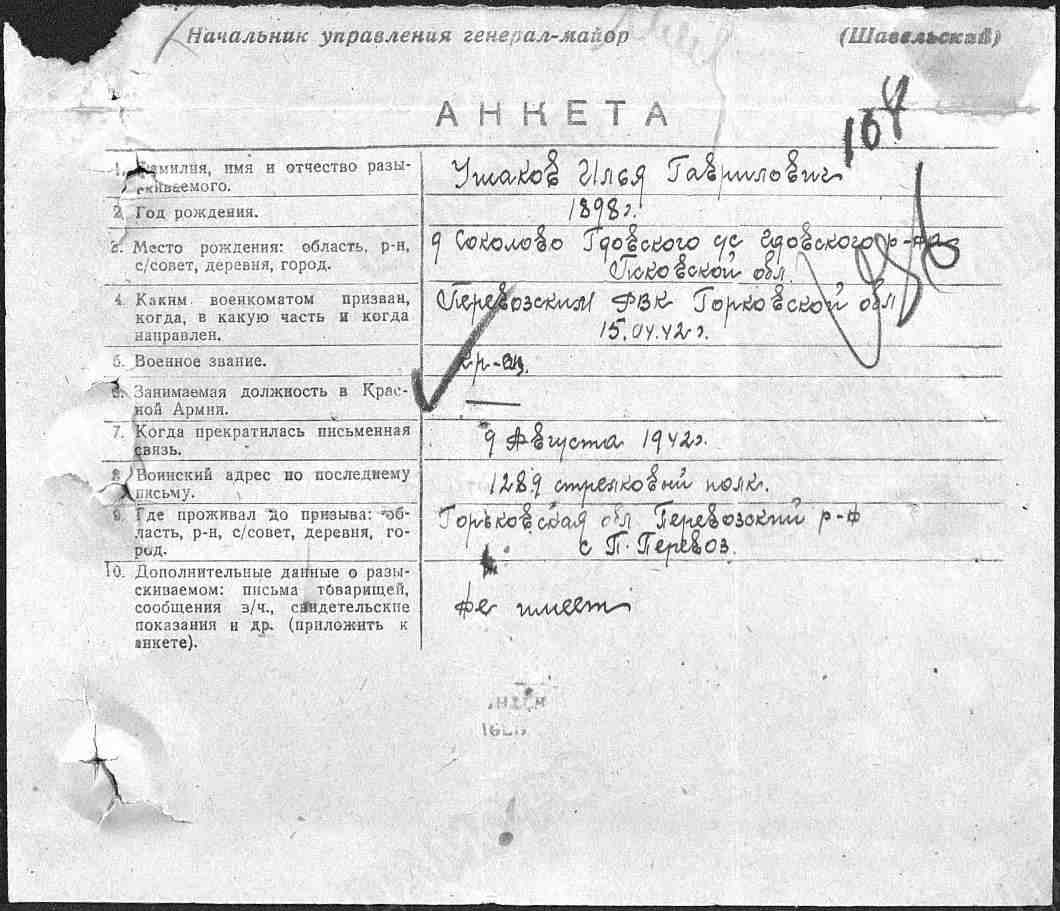 Начальник управления генерал-майор (Шавельский)
168
АНКЕТА
1. Фамилия, имя и отчество разы-
скиваемого.
Ушаков Илья Гаврилович
2. Год рождения.
1898г.
3. Место рождения: область, р-н,
с/совет, деревня, город.
д Соколово Гдовского с/с Гдовского р-на
Псковской обл
4. Каким военкоматом призван,
когда, в какую часть и когда
направлен.
Перевозским РВК Горковской обл
15.04.42г.
5. Военное звание.
кр-ец.
6. Занимаемая должность в Крас-
ной Армии.
—
7. Когда прекратилась письменная
связь.
9 Августа 1942г.
8. Воинский адрес по последнему
письму.
1289 стрелковый полк.
9. Где проживал до призыва: об-
ласть, р-н, с/совет, деревня, го-
род.
Горьковская обл Перевозский р-н
с П. Перевоз.
10. Дополнительные данные о разы-
скиваемом: письма товарищей,
сообщения в/ч., свидетельские
показания и др. (приложить к
анкете).
не имеет